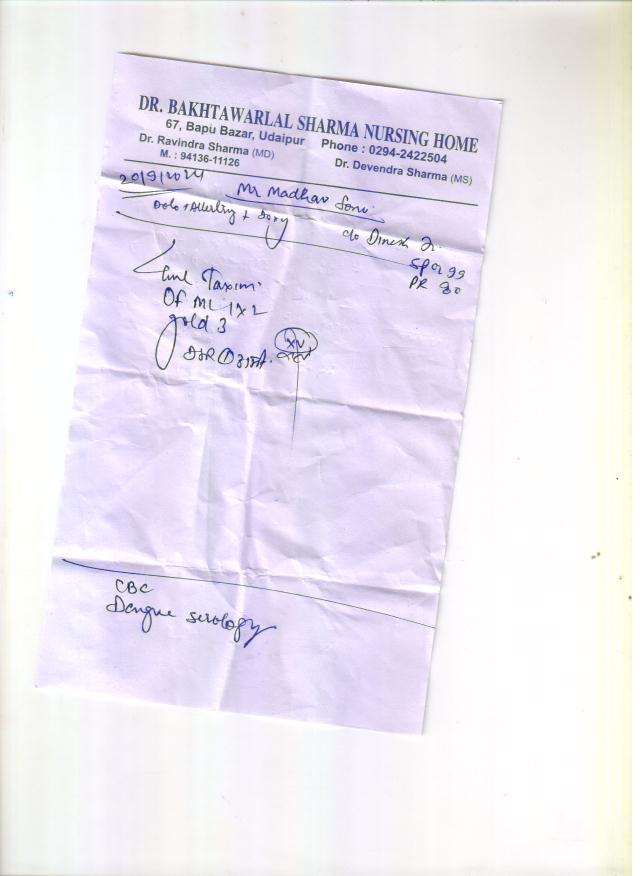 DR. BAKHTAWARLAL SHARMA NURSING HOME
67, Bapu Bazar, Udaipur Phone : 0294-2422504
Dr. Ravindra Sharma (MD) Dr. Devendra Sharma (MS)
M. : 94136-11126
20/9/2024 Mr Madhav Soni
Dolo + + Doxy
c/o Dinesh Jr.
SpO2 99
PR 80
Taxim
Of ML 1x2
gold 3
DSR
CBC
Dengue serology